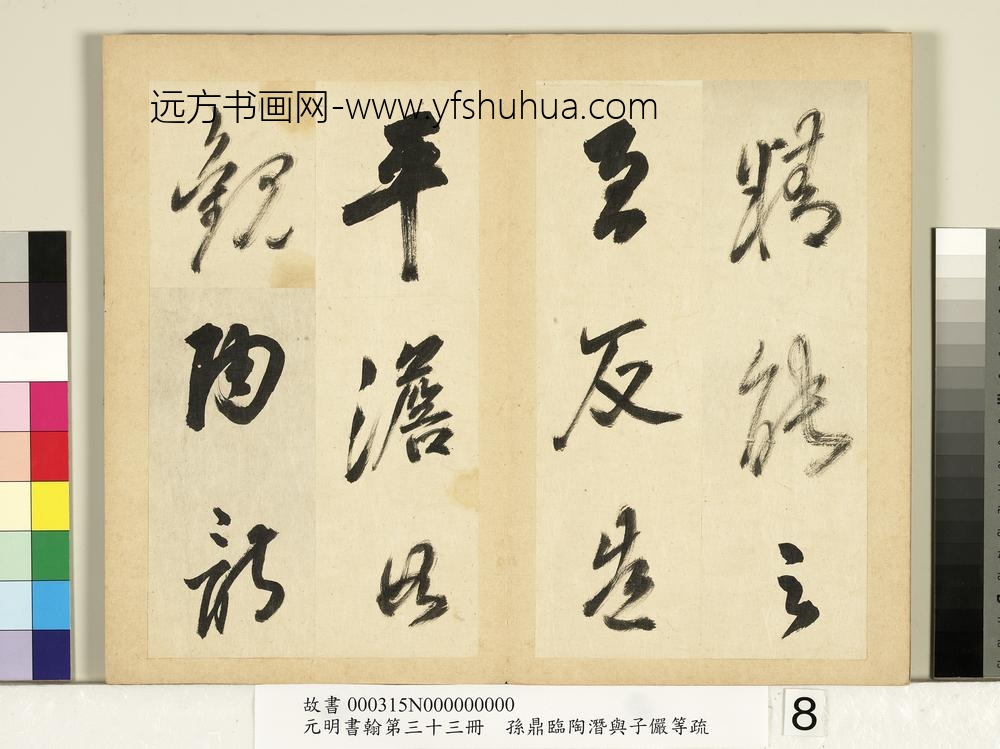 远方书画网-www.yfshuhua.com
精能之
至反造
平澹如
觀陶詩
故書 000315N000000000
元明書翰第三十三冊 孫鼎臨陶潛與子儼等疏
8